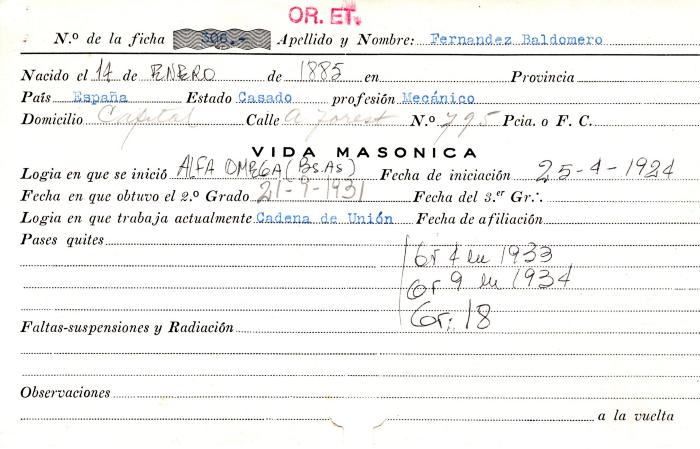 OR. ET.
N.º de la ficha 306.- Apellido y Nombre: Fernandez Baldomero
Nacido el 14 de ENERO de 1885 en Provincia
País España Estado Casado profesión Mecánico
Domicilio Capital Calle N.º 795 Pcia. o F. C.
VIDA MASONICA
Logia en que se inició ALFA OMEGA (BS.AS) Fecha de iniciación 25-4-1924
Fecha en que obtuvo el 2.º Grado 21-9-1931 Fecha del 3.er Gr∴
Logia en que trabaja actualmente Cadena de Unión Fecha de afiliación
Pases quites
Gr 4 en 1933
Gr 9 en 1934
Gr: 18
Faltas-suspensiones y Radiación
Observaciones
a la vuelta